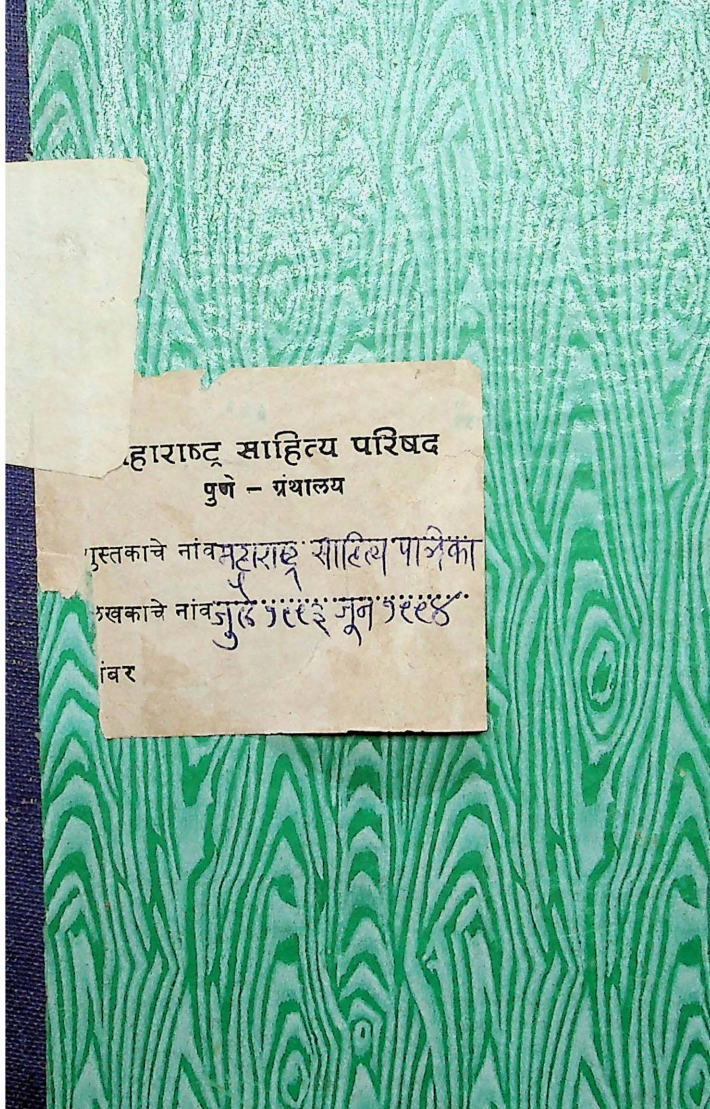 हाराष्ट्र साहित्य परिषद
पुणे – ग्रंथालय
पुस्तकाचे नांव महाराष्ट्र साहित्य पत्रिका
लेखकाचे नांव जुलै १९९३ जून १९९४
ंबर